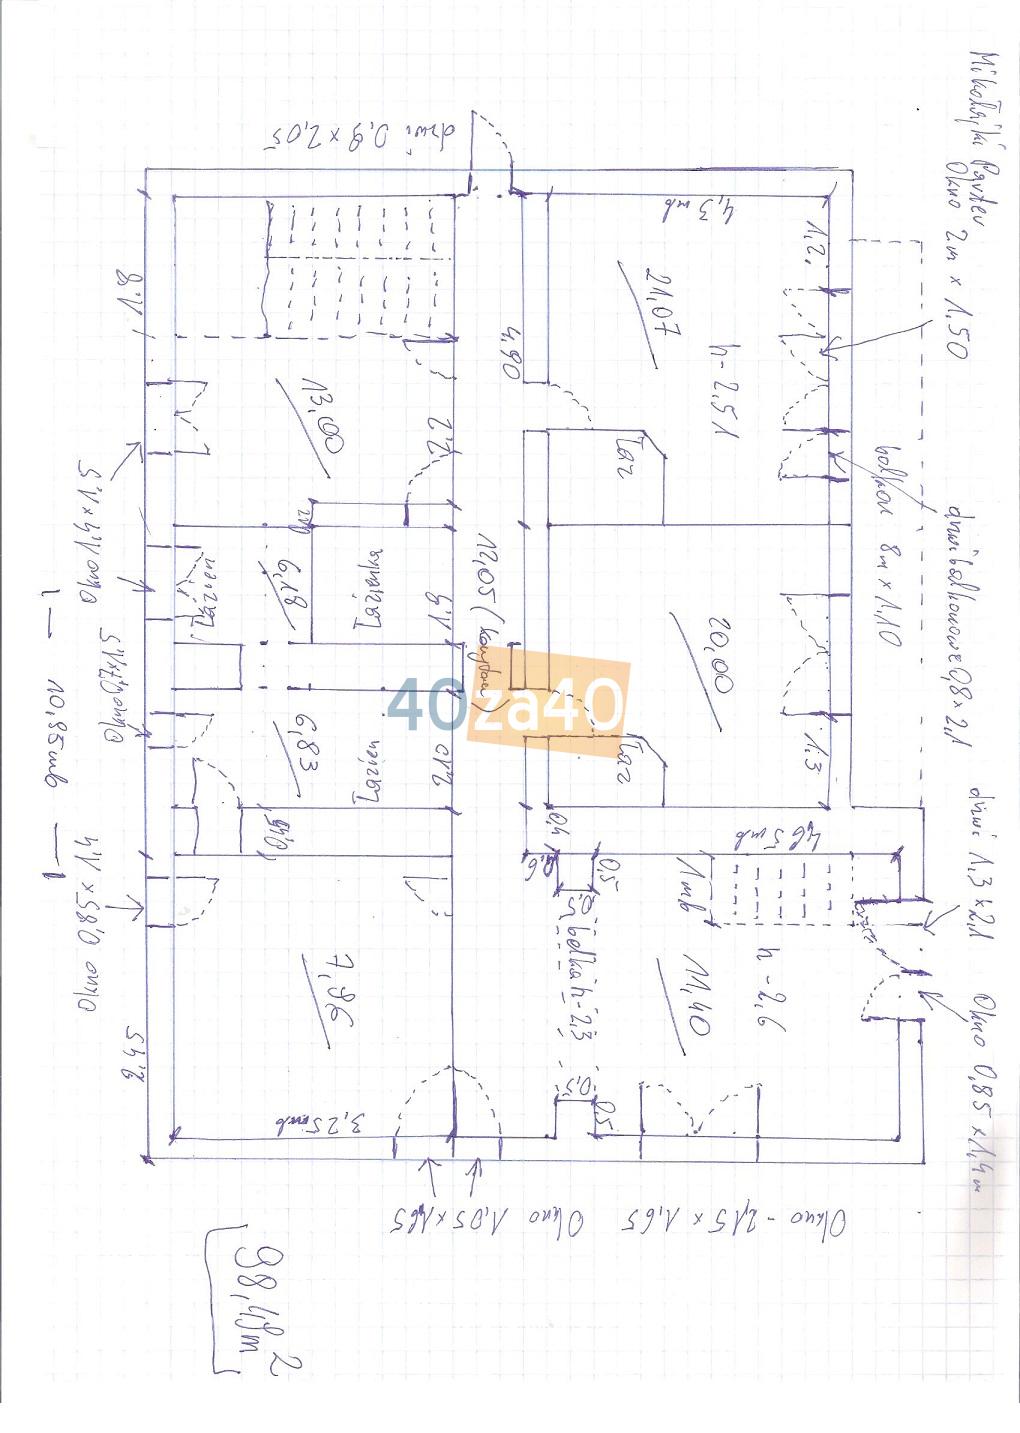 Mikołajki Parter
Okno 2m x 1,50
balkon 8m x 1,10
drzwi balkonowe 0,8 x 2,1
drzwi 1,3 x 2,1
Okno 0,85 x 1,4m
drzwi 0,9 x 2,05
4,3 mb
1,2
21,07
h-2,51
4,90
Taz
20,00
1,3
Taz
1,8
13,00
2,2
12,05 (
6,18
Łazienka
1,9
Łazien
6,83
Łazien
2,10
40za40
0,4
0,6
0,5
4,65 mb
1mb
h-2,6
11,40
belka h-2,3
0,5
0,5
7,96
3,25 mb
2,45
Okno 1,4 x 1,5
Okno 0,7 x 1,5
10,85 mb
Okno 0,85 x 1,4
Okno 1,05 x 1,65
Okno - 2,15 x 1,65
98,48m2